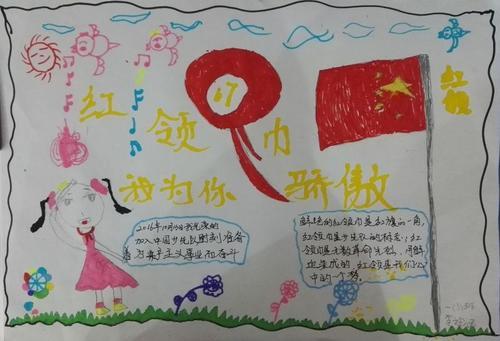 红领巾
67
红旗
我为你骄傲
2016年10月
加入中国少先队时刻准备
着为共产主义事业而奋斗
鲜艳的红领巾是红旗的一角,
红领巾是少先队的标志,红
领巾是无数革命先烈,用鲜
血染成的,红领是我们心
中的一个梦。